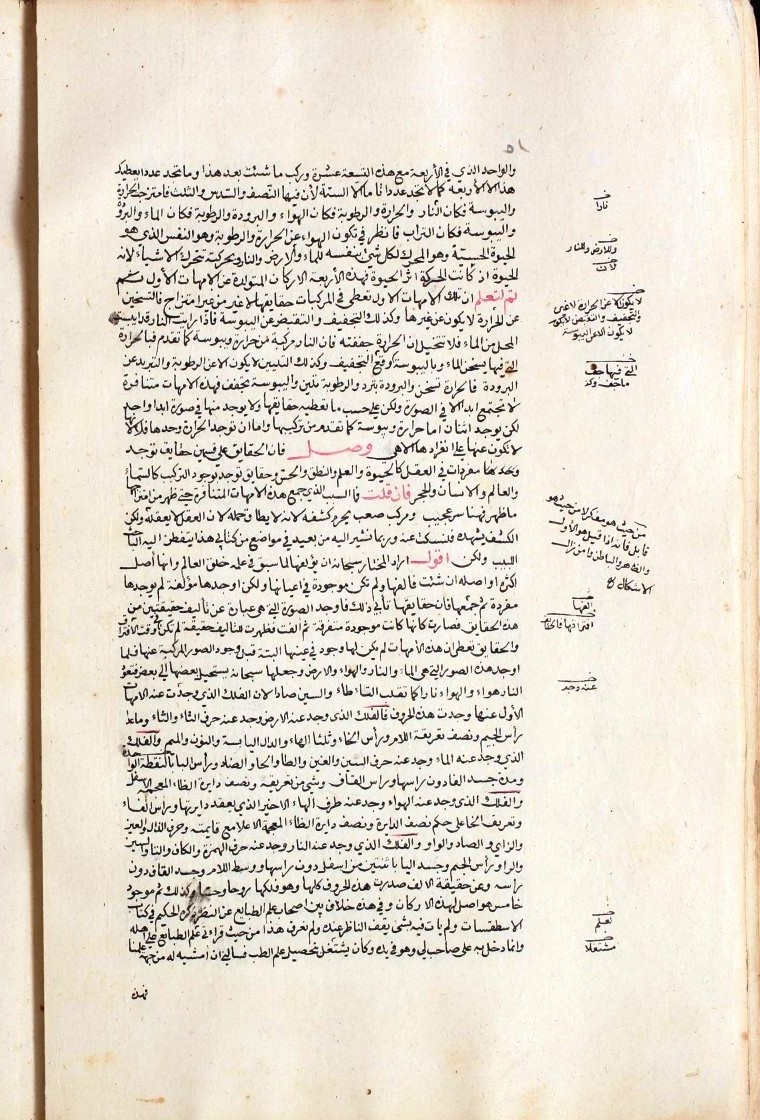 ٥١
والواحد الذي في الأربعة مع هذه التسعة عشرة وركب ما شئت بعد هذا وما تجد عددا يعطيك
هذا الا الأربعة كما لا تجد عددا تاما الا الستة لأن فيها النصف والسدس والثلث فامتزجت الحرارة
واليبوسة فكان النار والحرارة والرطوبة فكان الهواء والبرودة والرطوبة فكان الماء والبرودة
واليبوسة فكان التراب فانظر في تكون الهواء عن الحرارة والرطوبة وهو النفس الذي هو
الحيوة الحسية وهو المحرك لكل شئ بنفسه للماء والارض والنار وبحركته تتحرك الاشياء لانه
الحيوة اذ كانت الحركة اثر الحيوة فهذه الأربعة الاركان المتولدة عن الامهات الأول
ثم لتعلم ان تلك الامهات الاول تعطي في المركبات حقايقها لا غير من غير امتزاج فالتسخين
عن الحرارة لا يكون عن غيرها وكذلك التجفيف والتقبض عن اليبوسة فاذا رايت النار قد ايبست
المحل من الماء فلا تتخيل ان الحرارة جففته فان النار مركبة من حرارة ويبوسة كما تقدم فبالحرارة
التي فيها يسخن الماء وباليبوسة وقع التجفيف وكذلك التليين لا يكون الا عن الرطوبة والتبريد عن
البرودة فالحرارة تسخن والبرودة تبرد والرطوبة تلين واليبوسة تجفف فهذه الامهات متنافرة
لا تجتمع ابدا الا في الصورة ولكن على حسب ما تعطيه حقايقها ولا يوجد منها في صورة ابدا واحد
لكن يوجد اثنان اما حرارة ويبوسة كما تقدم من تركيبها واما ان توجد الحرارة وحدها فلا لانها
لا يكون عنها على انفرادها الا هي وصل فان الحقايق على قسمين حقايق توجد
مفردات في العقل كالحيوة والعلم والنطق والحس وحقايق توجد بوجود التركيب كالسماء
والعالم والانسان والحجر فان قلت فما السبب الذي جمع هذه الامهات المتنافرة حتى ظهر من امتزاجها
ما ظهر فهنا سر عجيب ومركب صعب يحرم كشفه لانه لا يطاق حمله لان العقل لا يعقله ولكن
الكشف يشهده فلنسكت عنه وربما نشير اليه من بعيد في مواضع من كتابي هذا يتفطن اليه الباحث
اللبيب ولكن اقول اراد المختار سبحانه ان يؤلفها لما سبق في علمه خلق العالم وانها أصل
اكثره او اصله ان شئت فالفها ولم تكن موجودة في اعيانها ولكن اوجدها مؤلفة لم يوجدها
مفردة ثم جمعها فان حقايقها تأبى ذلك فاوجد الصورة التي هي عبارة عن تأليف حقيقتين من
هذه الحقايق فصارت كانها كانت موجودة متفرقة ثم الفت فظهرت للتاليف حقيقة لم تكن في وقت الافتراق
والحقايق تعطي ان هذه الأمهات لم يكن لها وجود في عينها البتة قبل وجود الصور المركبة عنها فلما
اوجد هذه الصور التي هي الماء والنار والهواء والارض وجعلها سبحانه يستحيل بعضها الى بعض فتعود
النار هواء والهواء نارا كما تقلب التاء طاء والسين صادا لان الفلك الذي وجدت عنه الامهات
الأول عنها وجدت هذه الحروف فالفلك الذي وجد عنه الارض وجد عنه حرف الثاء والتاء وما عدا
رأس الجيم ونصف تعريقة اللام ورأس الخاء وثلثا الهاء والدال اليابسة والنون والميم والفلك
الذي وجد عنه الماء وجد عنه حرف الشين والغين والطا والحا والضاد ورأس البا بالنقطة الواحدة
ومدة جسد الفا دون راسها وراس القاف وشئ من تعريقه ونصف دايرة الظاء المعجمة الاسفل
والفلك الذي وجد عنه الهواء وجد عنه طرف الهاء الاخير الذي يعقد دايرتها ورأس الفاء
وتعريف الخا على حكم نصف الدايرة ونصف دايرة الظاء المعجمة الاعلا مع قايمته وحرف الذال والعين
والزاي والصاد والواو والفلك الذي وجد عنه النار وجد عنه حرف الهمزة والكاف والبا والسين
والرا ورأس الجيم وجسد اليا باثنتين من اسفل دون راسها ووسط اللام وجسد القاف دون
رأسه وعن حقيقة الالف صدرت هذه الحروف كلها وهو فلكها روحا وحسا وكذلك ثم موجود
خامس هو اصل لهذه الاركان وفي هذا خلاف بين اصحاب علم الطبايع عن النظر ذكره الحكيم في كتاب
الاسطقسات ولم يات فيه بشئ يقف الناظر عنده ولم نعرف هذا من حيث قراءتي علم الطبايع على اهله
وانما دخل به على صاحب لي وهو في يده وكان يشتغل بتحصيل علم الطب فسالني ان امشيه له من جهة علمنا
فهذه
نارا
وللارض وللنار
لا يكون الا عن الحرارة لا غير
والتجفيف والتقبض لا يكون
لا يكون الا عن اليبوسة
التي فيها
من حيث هو مفكر لا من حيث هو
قابل فانه اذا قبل هو الأول
والظاهر والباطن وامن زال
الاشكال
الفها
افتراقها فالحقايق
عنه وجد
لعلم
مشتغلا